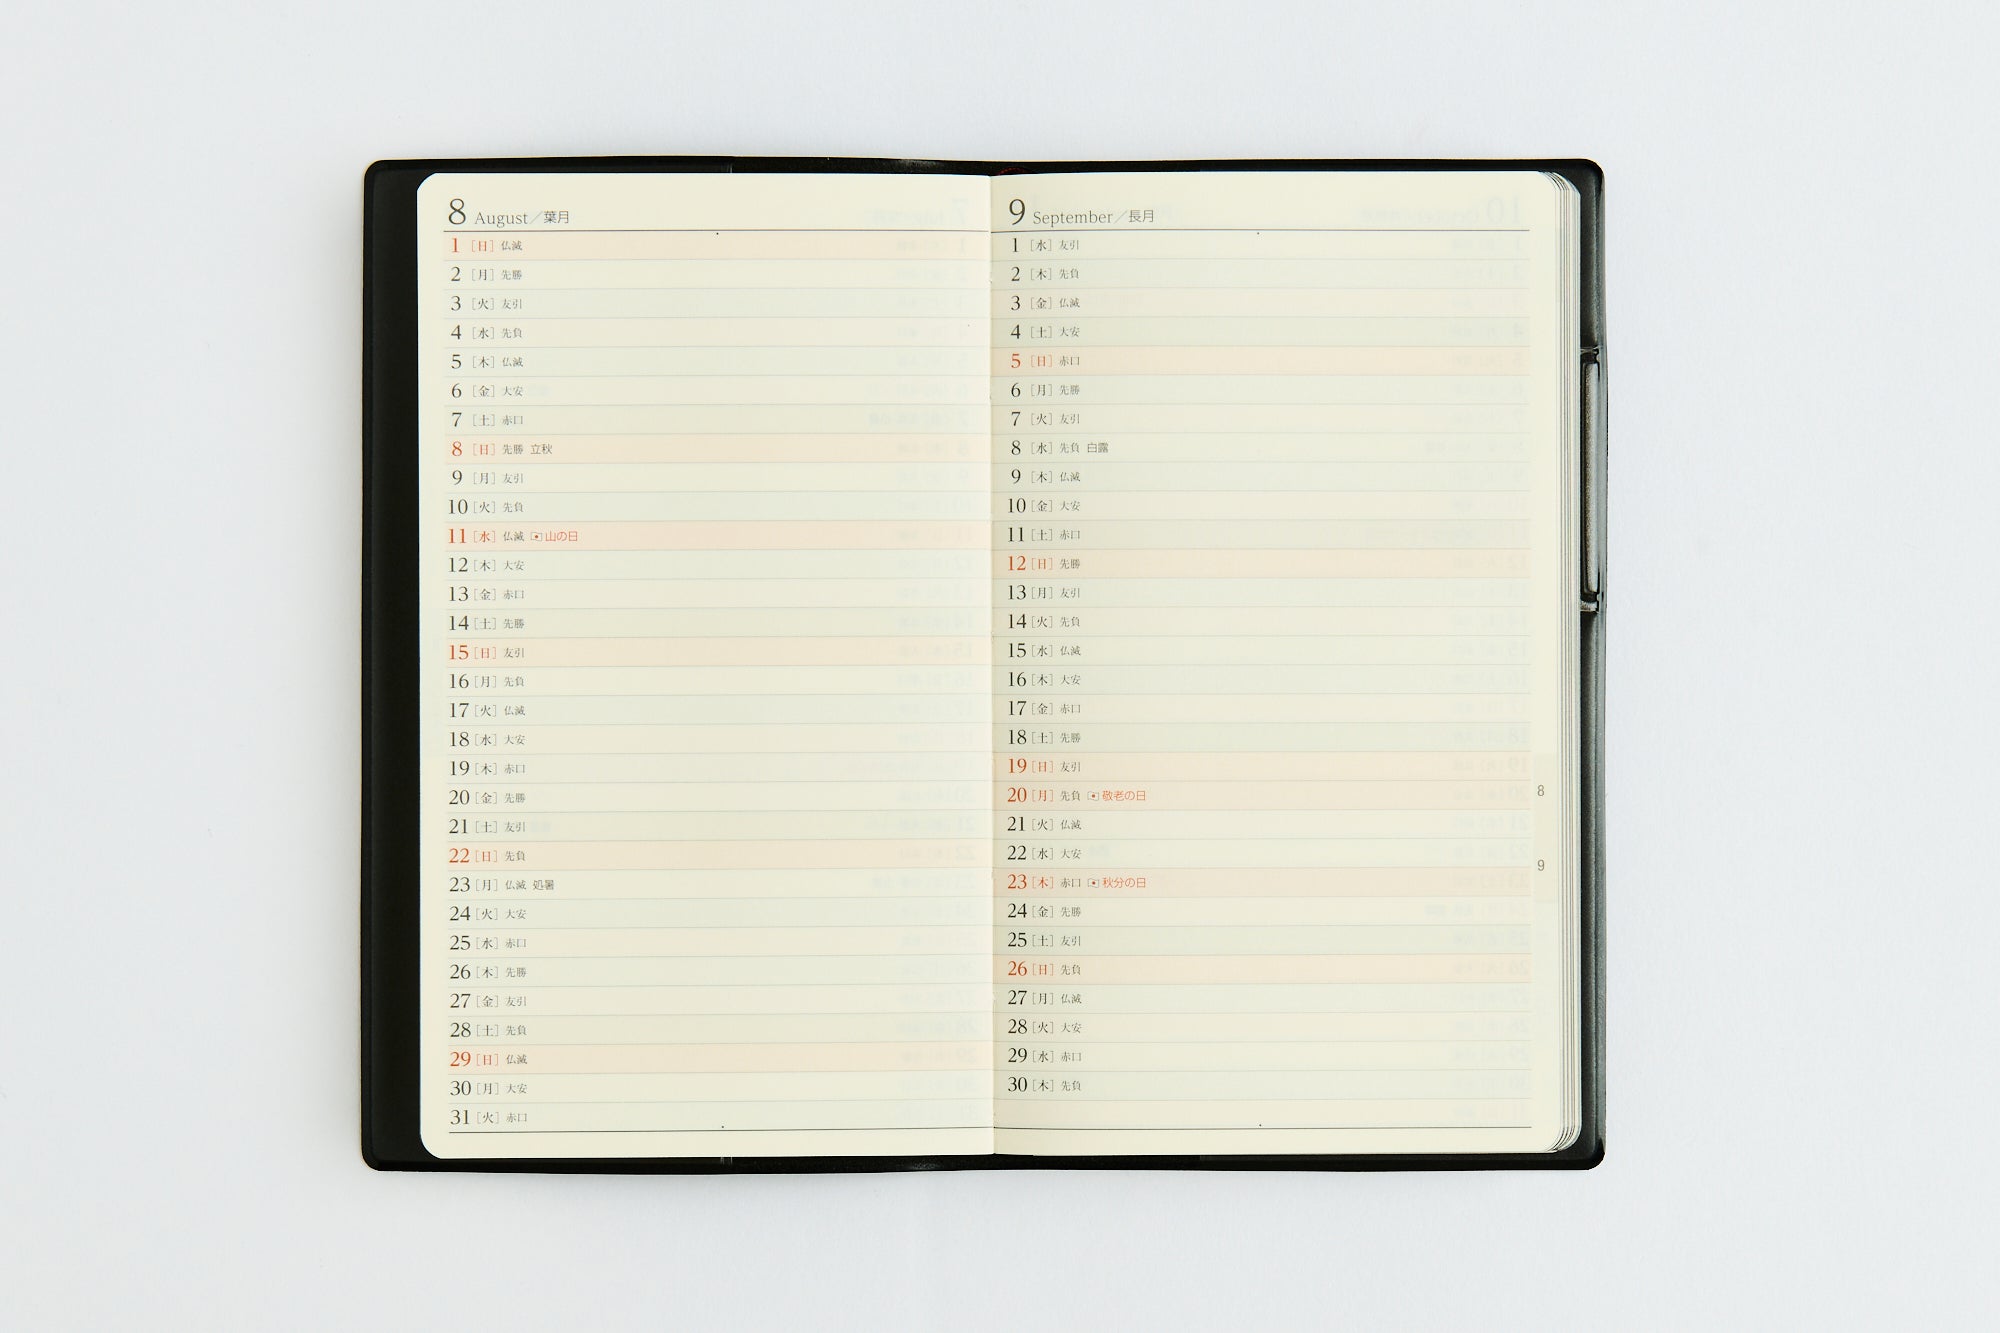 8 August／葉月
1 [日] 仏滅
2 [月] 先勝
3 [火] 友引
4 [水] 先負
5 [木] 仏滅
6 [金] 大安
7 [土] 赤口
8 [日] 先勝 立秋
9 [月] 友引
10 [火] 先負
11 [水] 仏滅 山の日
12 [木] 大安
13 [金] 赤口
14 [土] 先勝
15 [日] 友引
16 [月] 先負
17 [火] 仏滅
18 [水] 大安
19 [木] 赤口
20 [金] 先勝
21 [土] 友引
22 [日] 先負
23 [月] 仏滅 処暑
24 [火] 大安
25 [水] 赤口
26 [木] 先勝
27 [金] 友引
28 [土] 先負
29 [日] 仏滅
30 [月] 大安
31 [火] 赤口
9 September／長月
1 [水] 友引
2 [木] 先負
3 [金] 仏滅
4 [土] 大安
5 [日] 赤口
6 [月] 先勝
7 [火] 友引
8 [水] 先負 白露
9 [木] 仏滅
10 [金] 大安
11 [土] 赤口
12 [日] 先勝
13 [月] 友引
14 [火] 先負
15 [水] 仏滅
16 [木] 大安
17 [金] 赤口
18 [土] 先勝
19 [日] 友引
20 [月] 先負 敬老の日
21 [火] 仏滅
22 [水] 大安
23 [木] 赤口 秋分の日
24 [金] 先勝
25 [土] 友引
26 [日] 先負
27 [月] 仏滅
28 [火] 大安
29 [水] 赤口
30 [木] 先負
8
9